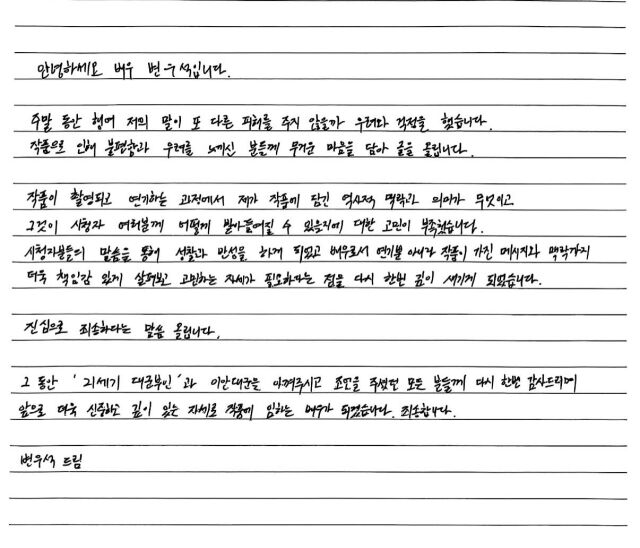 안녕하세요 배우 변우석입니다.
주말 동안 행여 저의 말이 또 다른 피해를 주지 않을까 우려와 걱정을 했습니다.
작품으로 인해 불편함과 우려를 느끼신 분들께 무거운 마음을 담아 글을 올립니다.
작품이 촬영되고 연기하는 과정에서 제가 작품에 담긴 역사적 맥락과 의미가 무엇이고
그것이 시청자 여러분께 어떻게 받아들여질 수 있을지에 대한 고민이 부족했습니다.
시청자분들의 말씀을 통해 성찰과 반성을 하게 되었고 배우로서 연기뿐 아니라 작품이 가진 메시지와 맥락까지
더욱 책임감 있게 살펴보고 고민하는 자세가 필요하다는 점을 다시 한번 깊이 새기게 되었습니다.
진심으로 죄송하다는 말씀 올립니다.
그 동안 '21세기 대군부인'과 이안대군을 아껴주시고 조언을 주셨던 모든 분들께 다시 한번 감사드리며
앞으로 더욱 신중하고 깊이 있는 자세로 작품에 임하는 배우가 되겠습니다. 죄송합니다.
변우석 드림